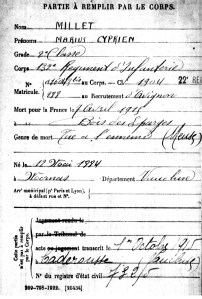 PARTIE À REMPLIR PAR LE CORPS.
Nom MILLET
Prénoms MARIUS CYPRIEN
Grade 2e Classe
Corps 132e Regiment d'Infanterie
N° au Corps. — Cl. 1904
Matricule. 888 au Recrutement d'Avignon
Mort pour la France le 7 Avril 1915
à Bois des Eparges
Genre de mort Tué à l'ennemi (Meuse)
Né le 12 1884
à Mornas Département Vaucluse
Arr' municipal (p' Paris et Lyon),
à défaut rue et N°.
Jugement rendu le
par le Tribunal de
acte ou jugement transcrit le 7 Octobre 1915
à Caderousse Vaucluse
N° du registre d'état civil